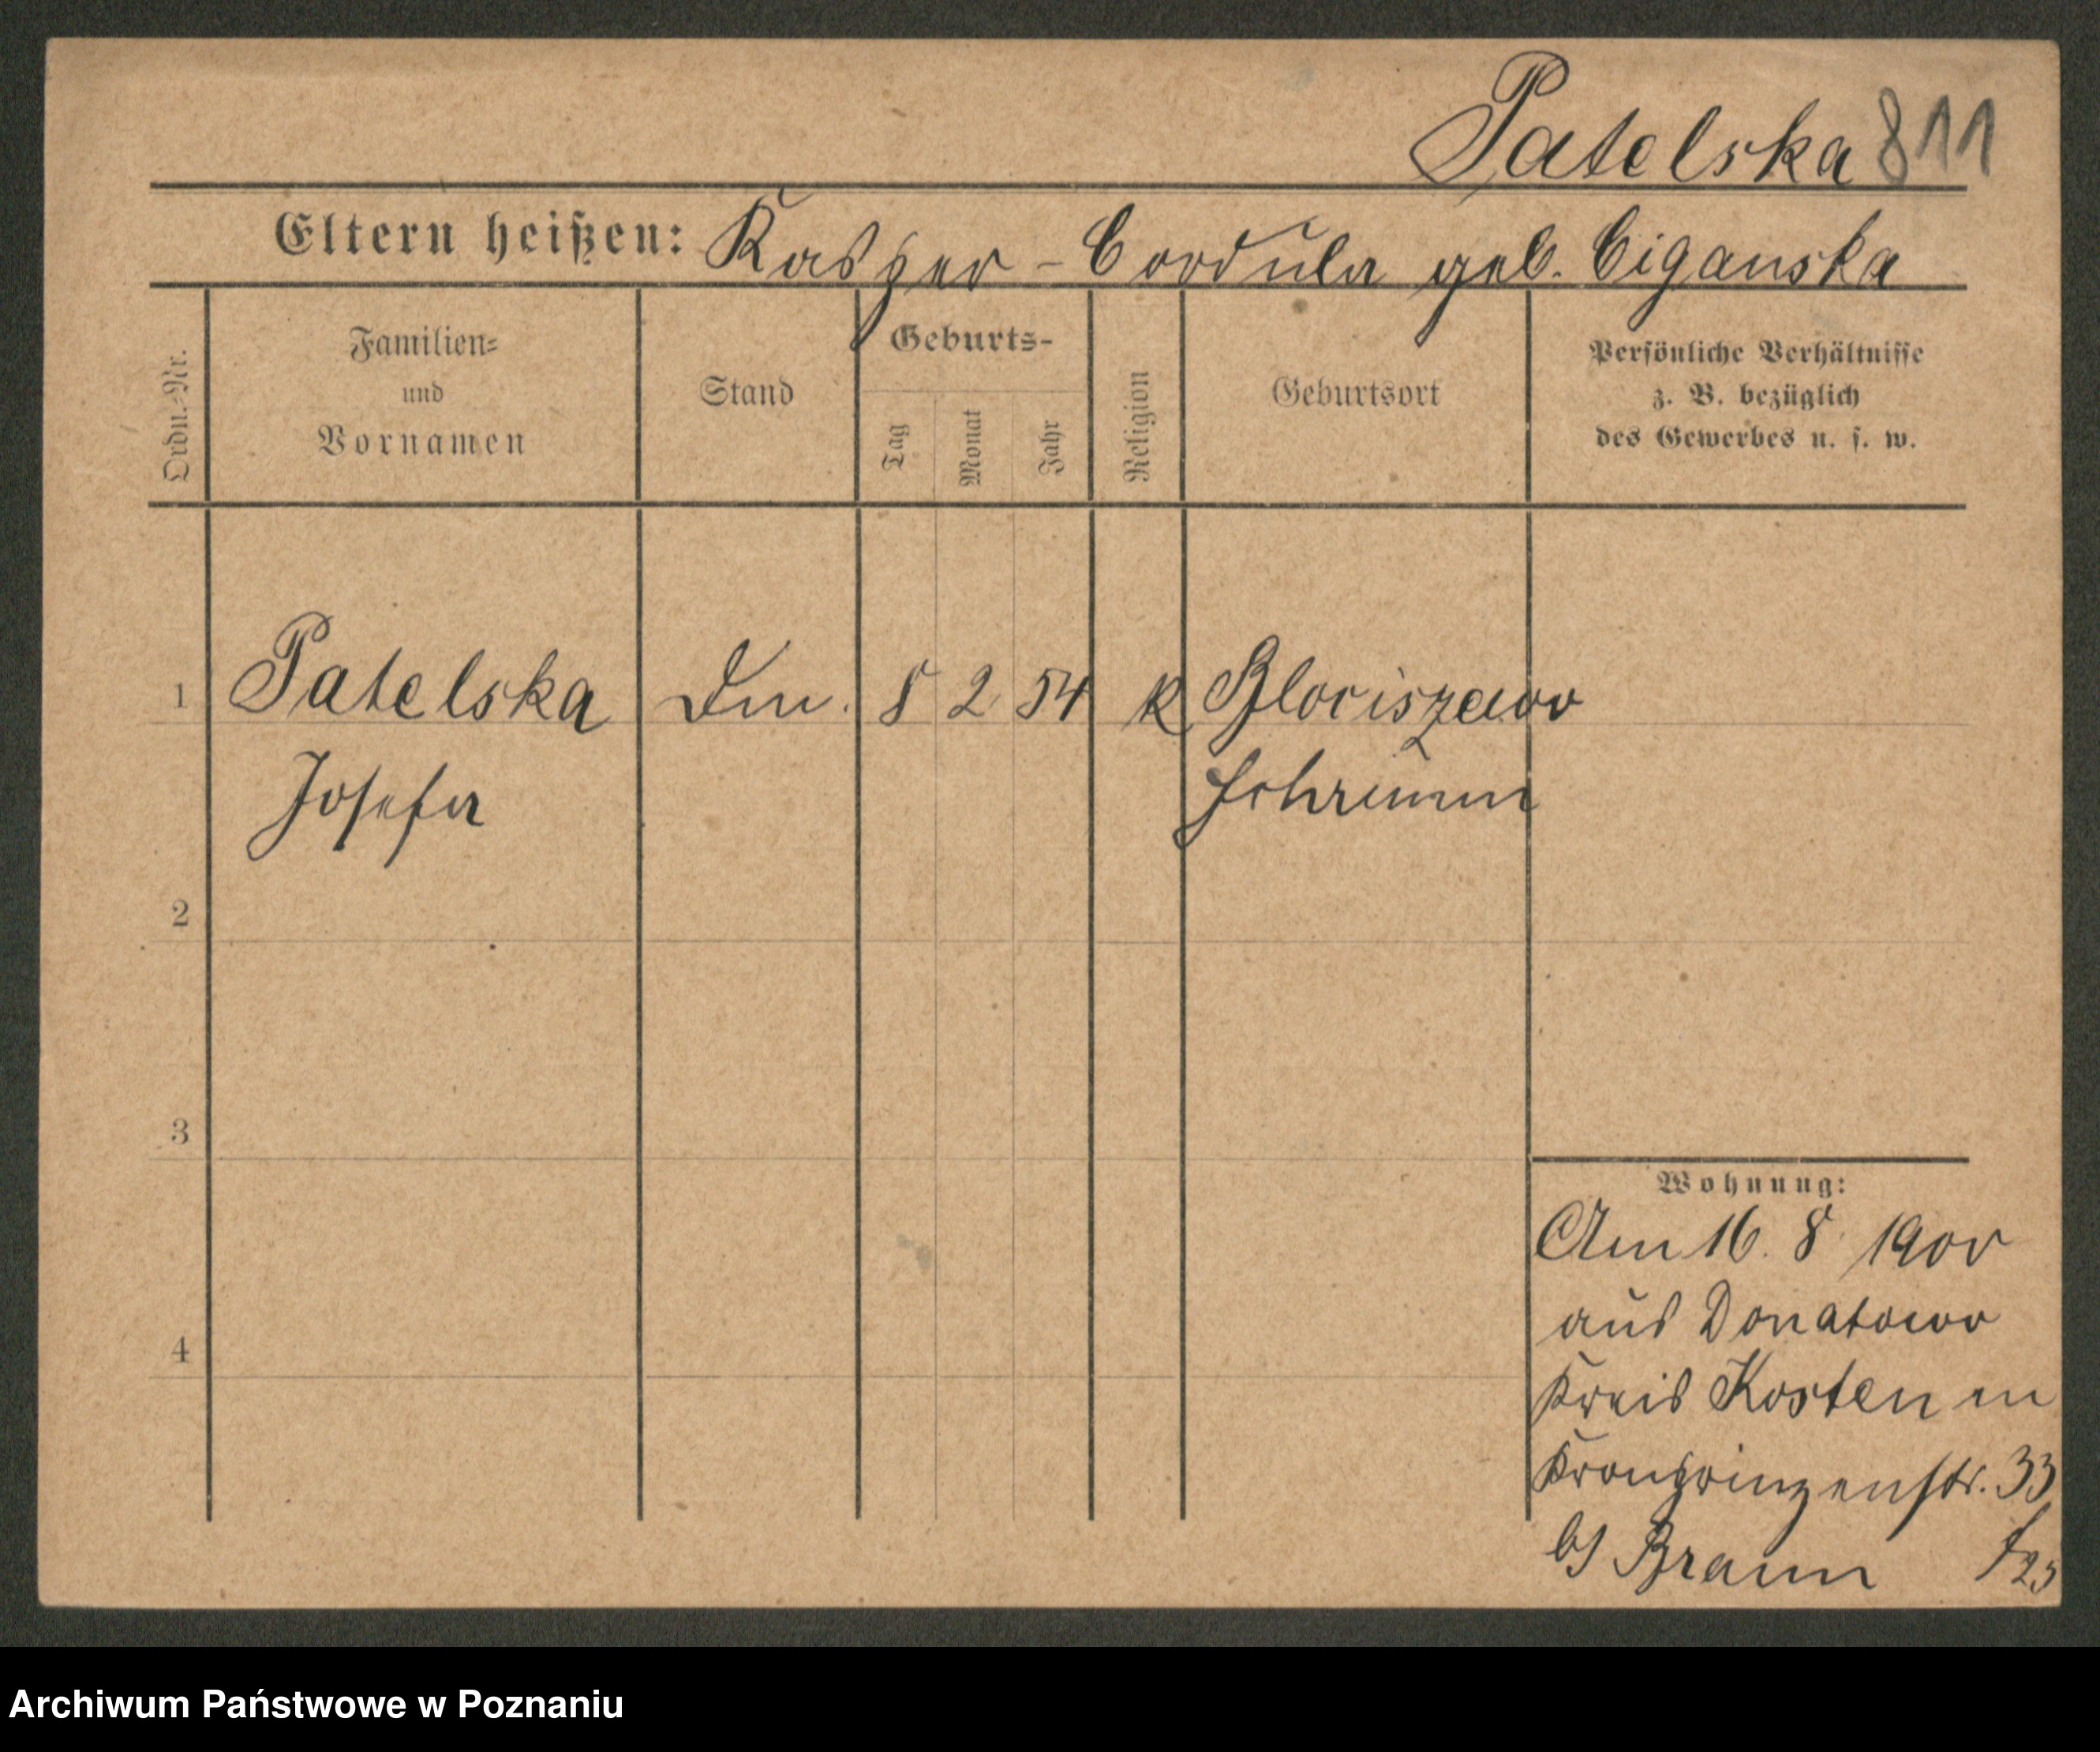 Patelska 811
Eltern heißen: Kasper - Cordula geb. Ciganska
Ordn.-Nr.
Familien-
und
Vornamen
Stand
Geburts-
Tag
Monat
Jahr
Religion
Geburtsort
Persönliche Verhältnisse
z. B. bezüglich
des Gewerbes u. s. w.
1 Patelska 8 2 54 k Blociszewo
Josefa Schrimm
2
3
4
Wohnung:
Am 16. 8 1900
aus Donatowo
Kreis Kosten in
Kronprinzenstr. 33
b/ Braun
Archiwum Państwowe w Poznaniu